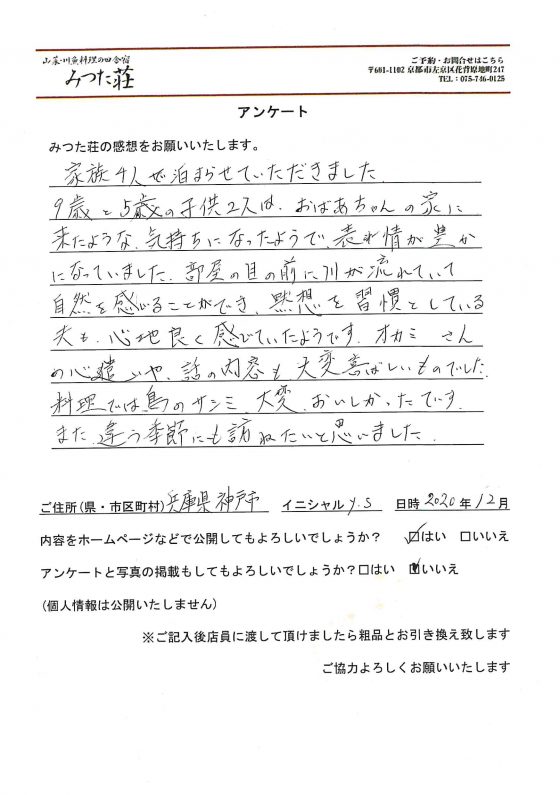 山菜・川魚料理の田舎宿
みつた荘
ご予約・お問合せはこちら
〒601-1102 京都市左京区花背原地町247
TEL:075-746-0125
アンケート
みつた荘の感想をお願いいたします。
家族4人で泊まらせていただきました.
9歳と5歳の子供2人は、おばあちゃんの家に
来たような、気持ちになったようで表れ情が豊か
になっていました. 部屋の目の前に川が流れていて
自然を感じることができ、黙想を習慣としている
夫も、心地良く感じていたようです. オカミ さん
の心遣いや、話の内容も大変喜ばしいものでした.
料理では鳥のサシミ 大変、おいしかったです.
また、違う季節にも訪ねたいと思いました.
ご住所(県・市区町村)兵庫県神戸市 イニシャル Y.S 日時 2020年12月
内容をホームページなどで公開してもよろしいでしょうか? ☑はい □いいえ
アンケートと写真の掲載もしてもよろしいでしょうか?□はい ☑いいえ
(個人情報は公開いたしません)
※ご記入後店員に渡して頂けましたら粗品とお引き換え致します
ご協力よろしくお願いいたします